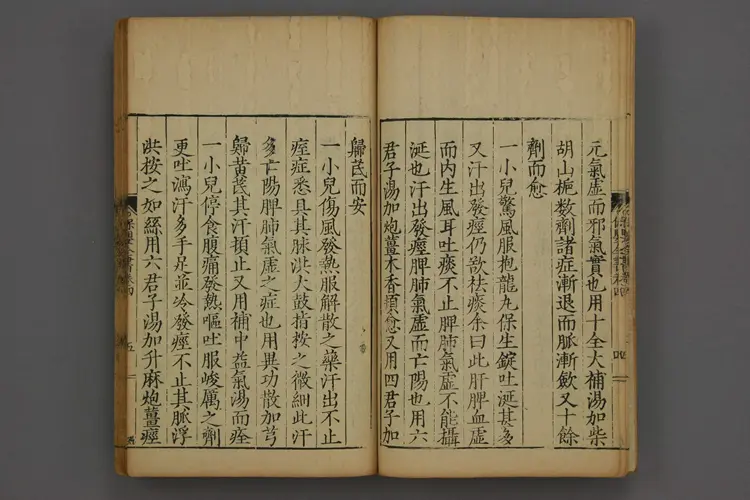 元氣虛而邪氣實也用十全大補湯加柴
胡山梔數劑諸症漸退而脈漸斂又十餘
劑而愈
一小兒驚風服抱龍丸保生錠吐涎甚多
又汗出發痙仍欲祛痰余曰此肝脾血虛
而内生風耳吐痰不止脾肺氣虛不能攝
涎也汗出發痙脾肺氣虛而亡陽也用六
君子湯加炮薑木香頓愈又用四君子加
歸芪而安
一小兒傷風發熱服解散之藥汗出不止
痙症悉具其脉洪大鼓指按之微細此汗
多亡陽脾肺氣虛之症也用異功散加芎
歸黃芪其汗頓止又用補中益氣湯而痊
一小兒停食腹痛發熱嘔吐服峻厲之劑
更吐瀉汗多手足並冷發痙不止其脈浮
洪按之如絲用六君子湯加升麻炮薑痙
保嬰全書卷四
四
保嬰全書卷四
五